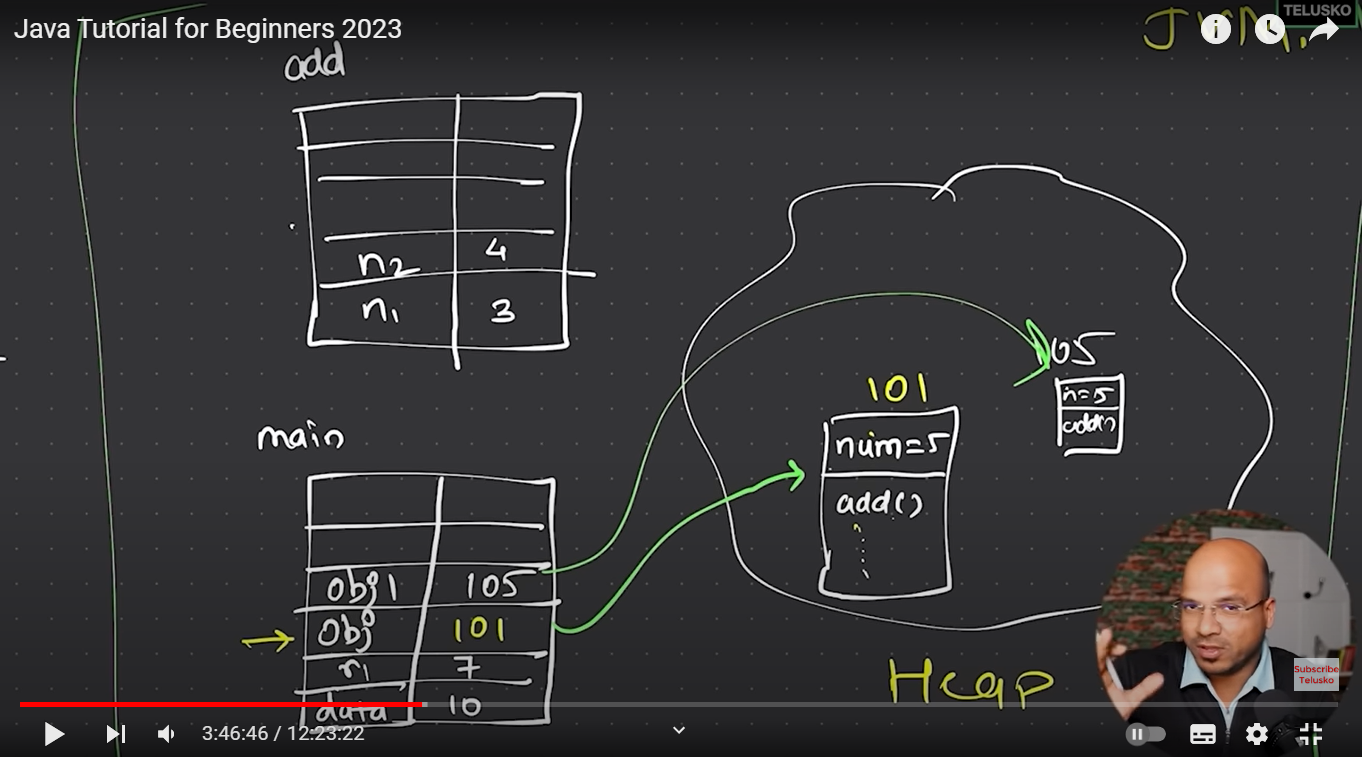 Java Tutorial for Beginners 2023
TELUSKO
JVM.
add
n2 4
n1 3
main
obj1 105
obj 101
r1 7
data 10
101
num=5
add()
105
n=5
add()
Heap
Subscribe
Telusko
3:46:46 / 12:23:22